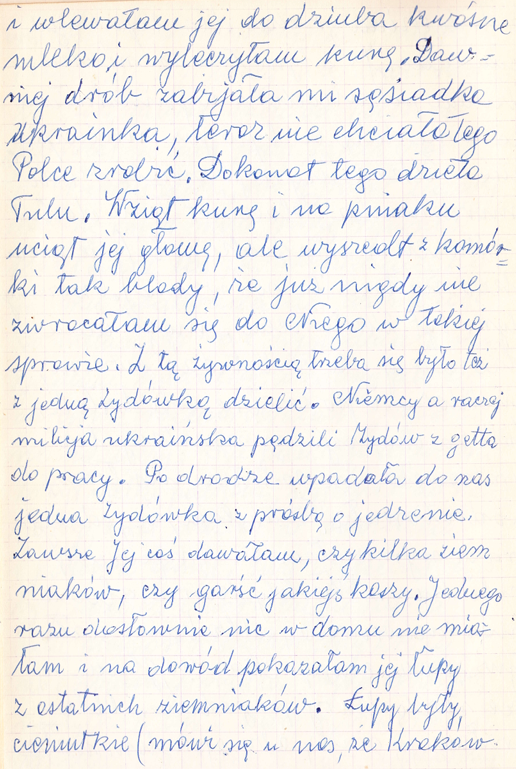 i wlewałam jej do dzioba kwaśne
mleko, i wyleczyłam kurę. Daw=
niej drób zabijała mi sąsiadka
Ukrainka, teraz nie chciała tego
Polce zrobić. Dokonał tego dzieła
Tulu. Wziął kurę i na pniaku
uciął jej głowę, ale wyszedł z komór=
ki tak blady, że już nigdy nie
zwracałam się do Niego w takiej
sprawie. Z tą żywnością trzeba się było też
z jedną Żydówką dzielić. Niemcy a raczej
milicja ukraińska pędzili Żydów z getta
do pracy. Po drodze wpadała do nas
jedna Żydówka z prośbą o jedzenie.
Zawsze Jej coś dawałam, czy kilka ziem
niaków, czy garść jakiejś kaszy. Jednego
razu dosłownie nic w domu nie mia-
łam i na dowód pokazałam jej łupy
z ostatnich ziemniaków. Łupy były
cieniutkie (mówi się u nas, że Kraków-